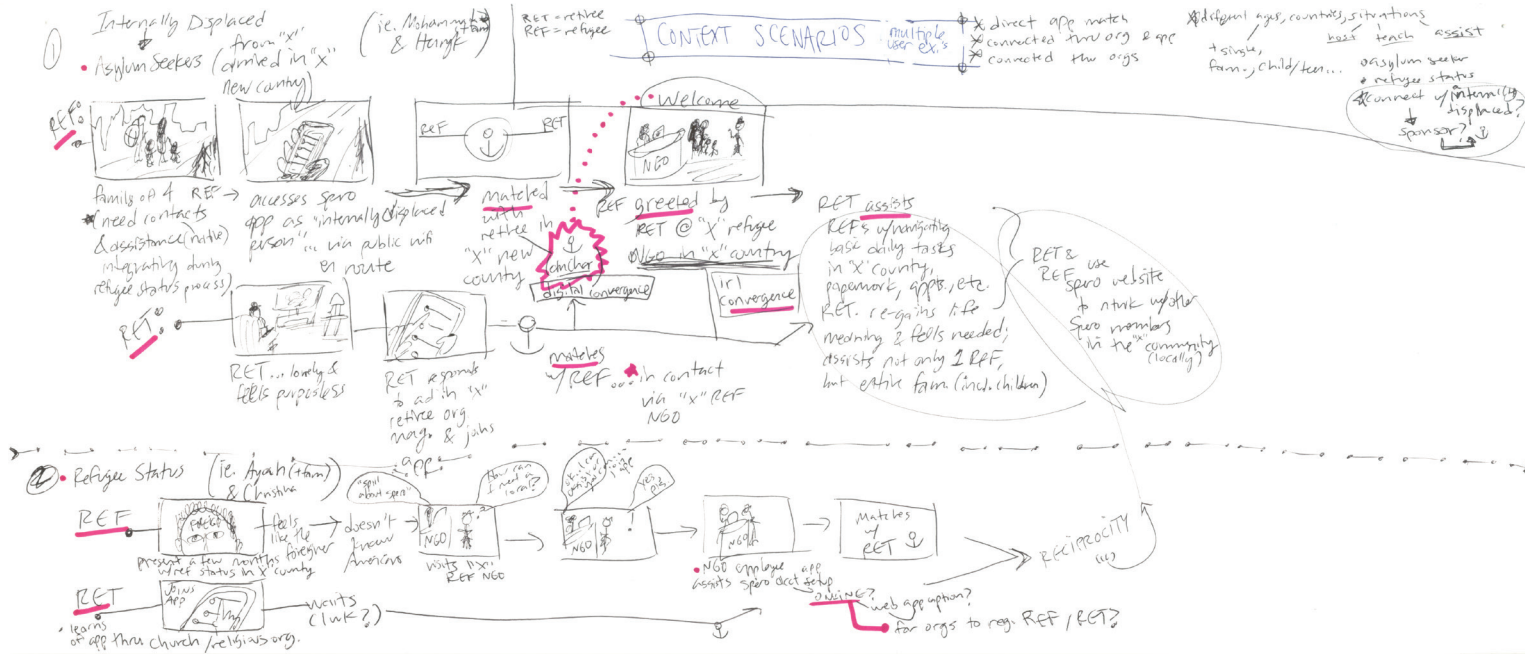 ①
Internally Displaced
from "x"
• Asylum Seekers (arrived in "x"
new country)
(ie.
& Henryk)
RET = retiree
REF = refugee
CONTEXT SCENARIOS multiple
user ex.'s
direct app match
connected thru org & app
connected thru orgs
different ages, countries, situations
host teach assist
+ single,
fam., child/teen...
asylum seeker
refugee status
connect w/internally
displaced?
sponsor?
REF:
REF RET
Welcome
NGO
family of 4 REF →
(need contacts
& assistance (native)
integrating during
refugee status process)
accesses spero
app as "internally displaced
person"... via public wifi
en route
matched
with
retiree in
"X" new
country
digital convergence
REF greeted by
RET @ "X" refugee
NGO in "X" country
irl
convergence
RET assists
REFs w/navigating
basic daily tasks
in "X" country,
paperwork, appts., etc.
RET. re-gains life
meaning & feels needed;
assists not only 1 REF,
but entire fam. (incl. children)
RET &
REF use
spero website
to ntwk w/other
Spero members
in the "x" community
(locally)
RET:
RET... lonely &
feels purposeless
RET responds
to ad in "X"
retiree org.
mag. & joins
app.
matches
w/REF... in contact
via "X" REF
NGO
② • Refugee Status (ie. Ayah (+fam)
& Christina
REF
feels
like the
foreigner
present a few months
w/ref status in X country
doesn't
know
Americans
"spiel
about spero"
How can
I meet a
local?
NGO
visits "X"
REF NGO
yes
pls
NGO
NGO
• NGO employee app
assists spero acct setup
Matches
w/
RET
ONLINE?
web app option?
for orgs to reg. REF / RET?
RECIPROCITY
RET
JOINS
APP
• learns
of app thru church/religious org.
waits
(1 wk?)